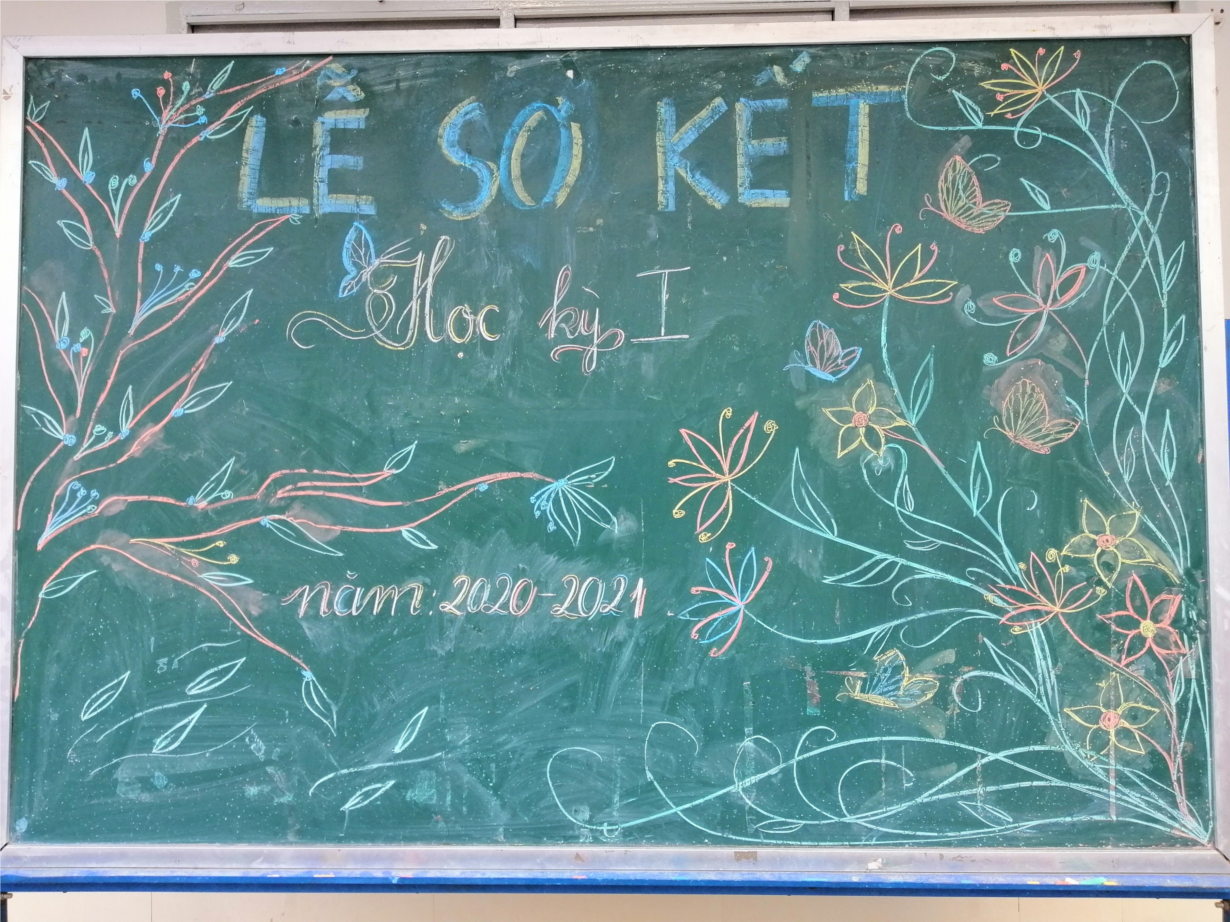 LỄ SƠ KẾT
Học kỳ I
năm: 2020-2021